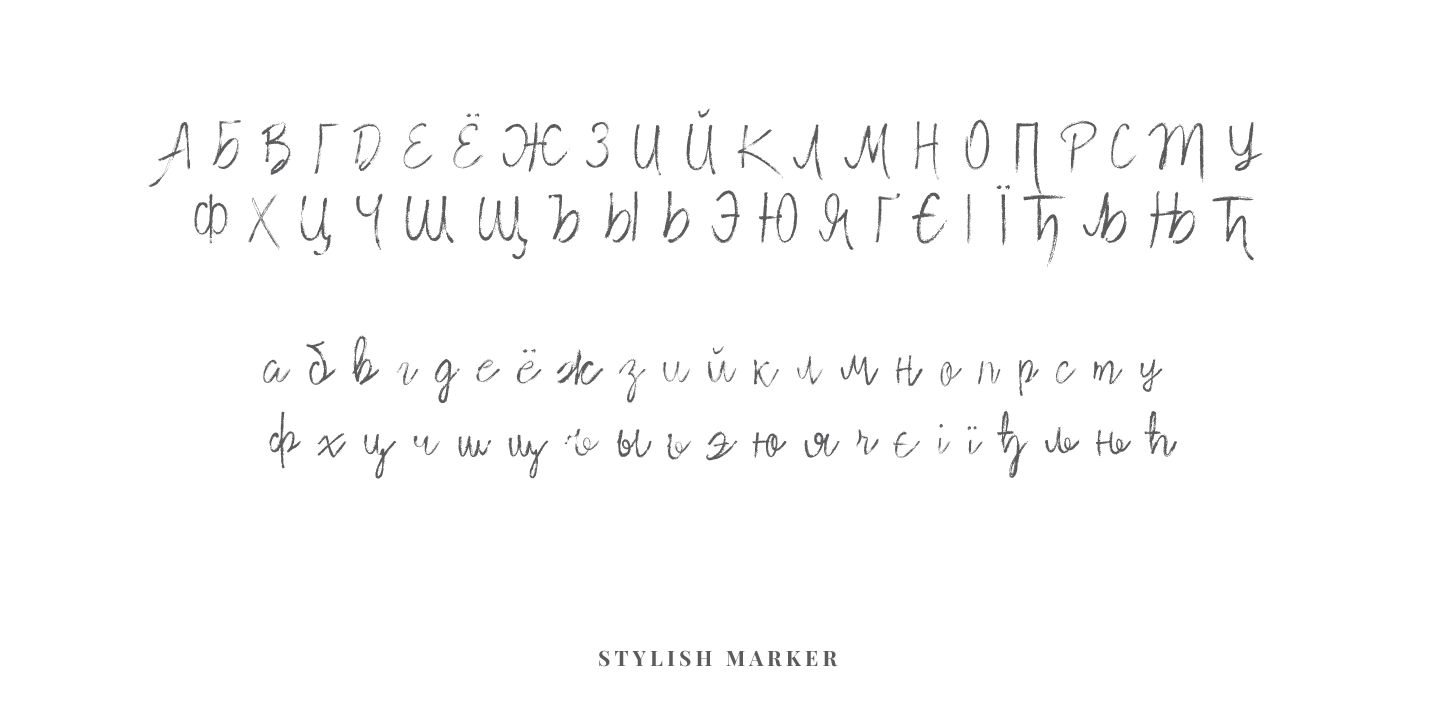 А Б В Г Д Е Ё Ж З И Й К Л М Н О П Р С Т У
Ф Х Ц Ч Ш Щ Ъ Ы Ь Э Ю Я Ґ Є І Ї Ђ Љ Њ Ћ
а б в г д е ё ж з и й к л м н о п р с т у
ф х ц ч ш щ ъ ы ь э ю я ґ є і ї ђ љ њ ћ
STYLISH MARKER